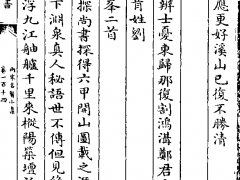 應更好溪山已復不勝清
辨士憂東歸那復割鴻溝鄭君
肯姓劉
峯二首
探尚書探得六甲開山圖載之
下淵泉眞人秘語世不傳但見
浮九江舳艫千里來樅陽築壇